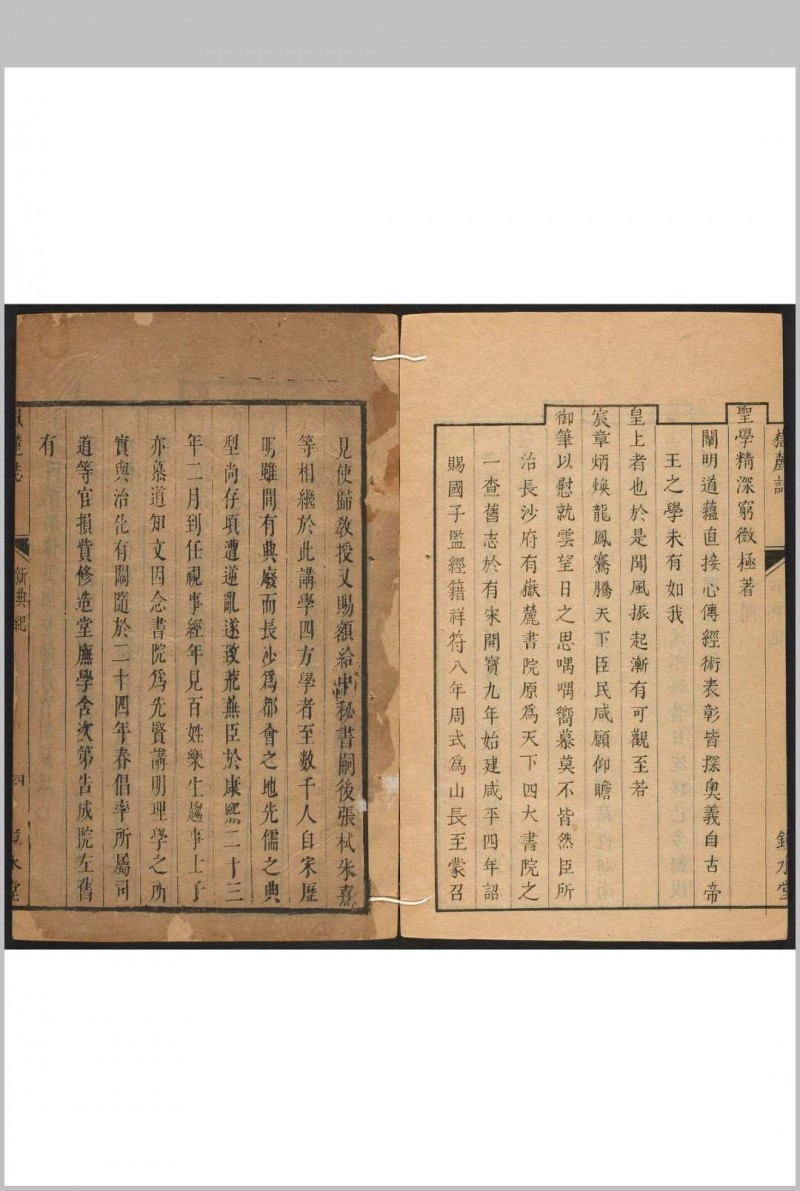 聖學精深窮微極著
闡明道蘊直接心傳經術表彰皆探奧義自古帝
王之學未有如我
皇上者也於是聞風振起漸有可觀至若
宸章炳煥龍鳳騫騰天下臣民咸願仰瞻
御筆以慰就雲望日之思喁喁嚮慕莫不皆然臣所
治長沙府有嶽麓書院原爲天下四大書院之
一查舊志於有宋開寶九年始建咸平四年詔
賜國子監經籍祥符八年周式爲山長至蒙召
見使歸教授又賜額給中秘書嗣後張栻朱熹
等相繼於此講學四方學者至數千人自宋歷
明雖間有興廢而長沙爲都會之地先儒之典
型尚存項遭逆亂遂致荒蕪臣於康熙二十三
年二月到任視事經年見百姓樂生趨事上子
亦慕道知文因念書院爲先賢講明理學之所
實與治化有關隨於二十四年春倡率所屬司
道等官損貲修造堂廡學舍次第告成院左舊
有
新典紀
四